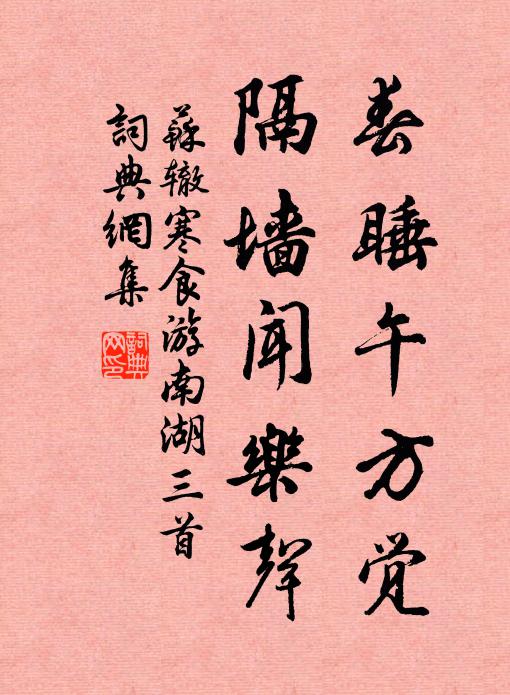 春睡午方觉
隔墙闻樂聲
蘇辙寒食游南湖三首
詞典網集
詞典网印